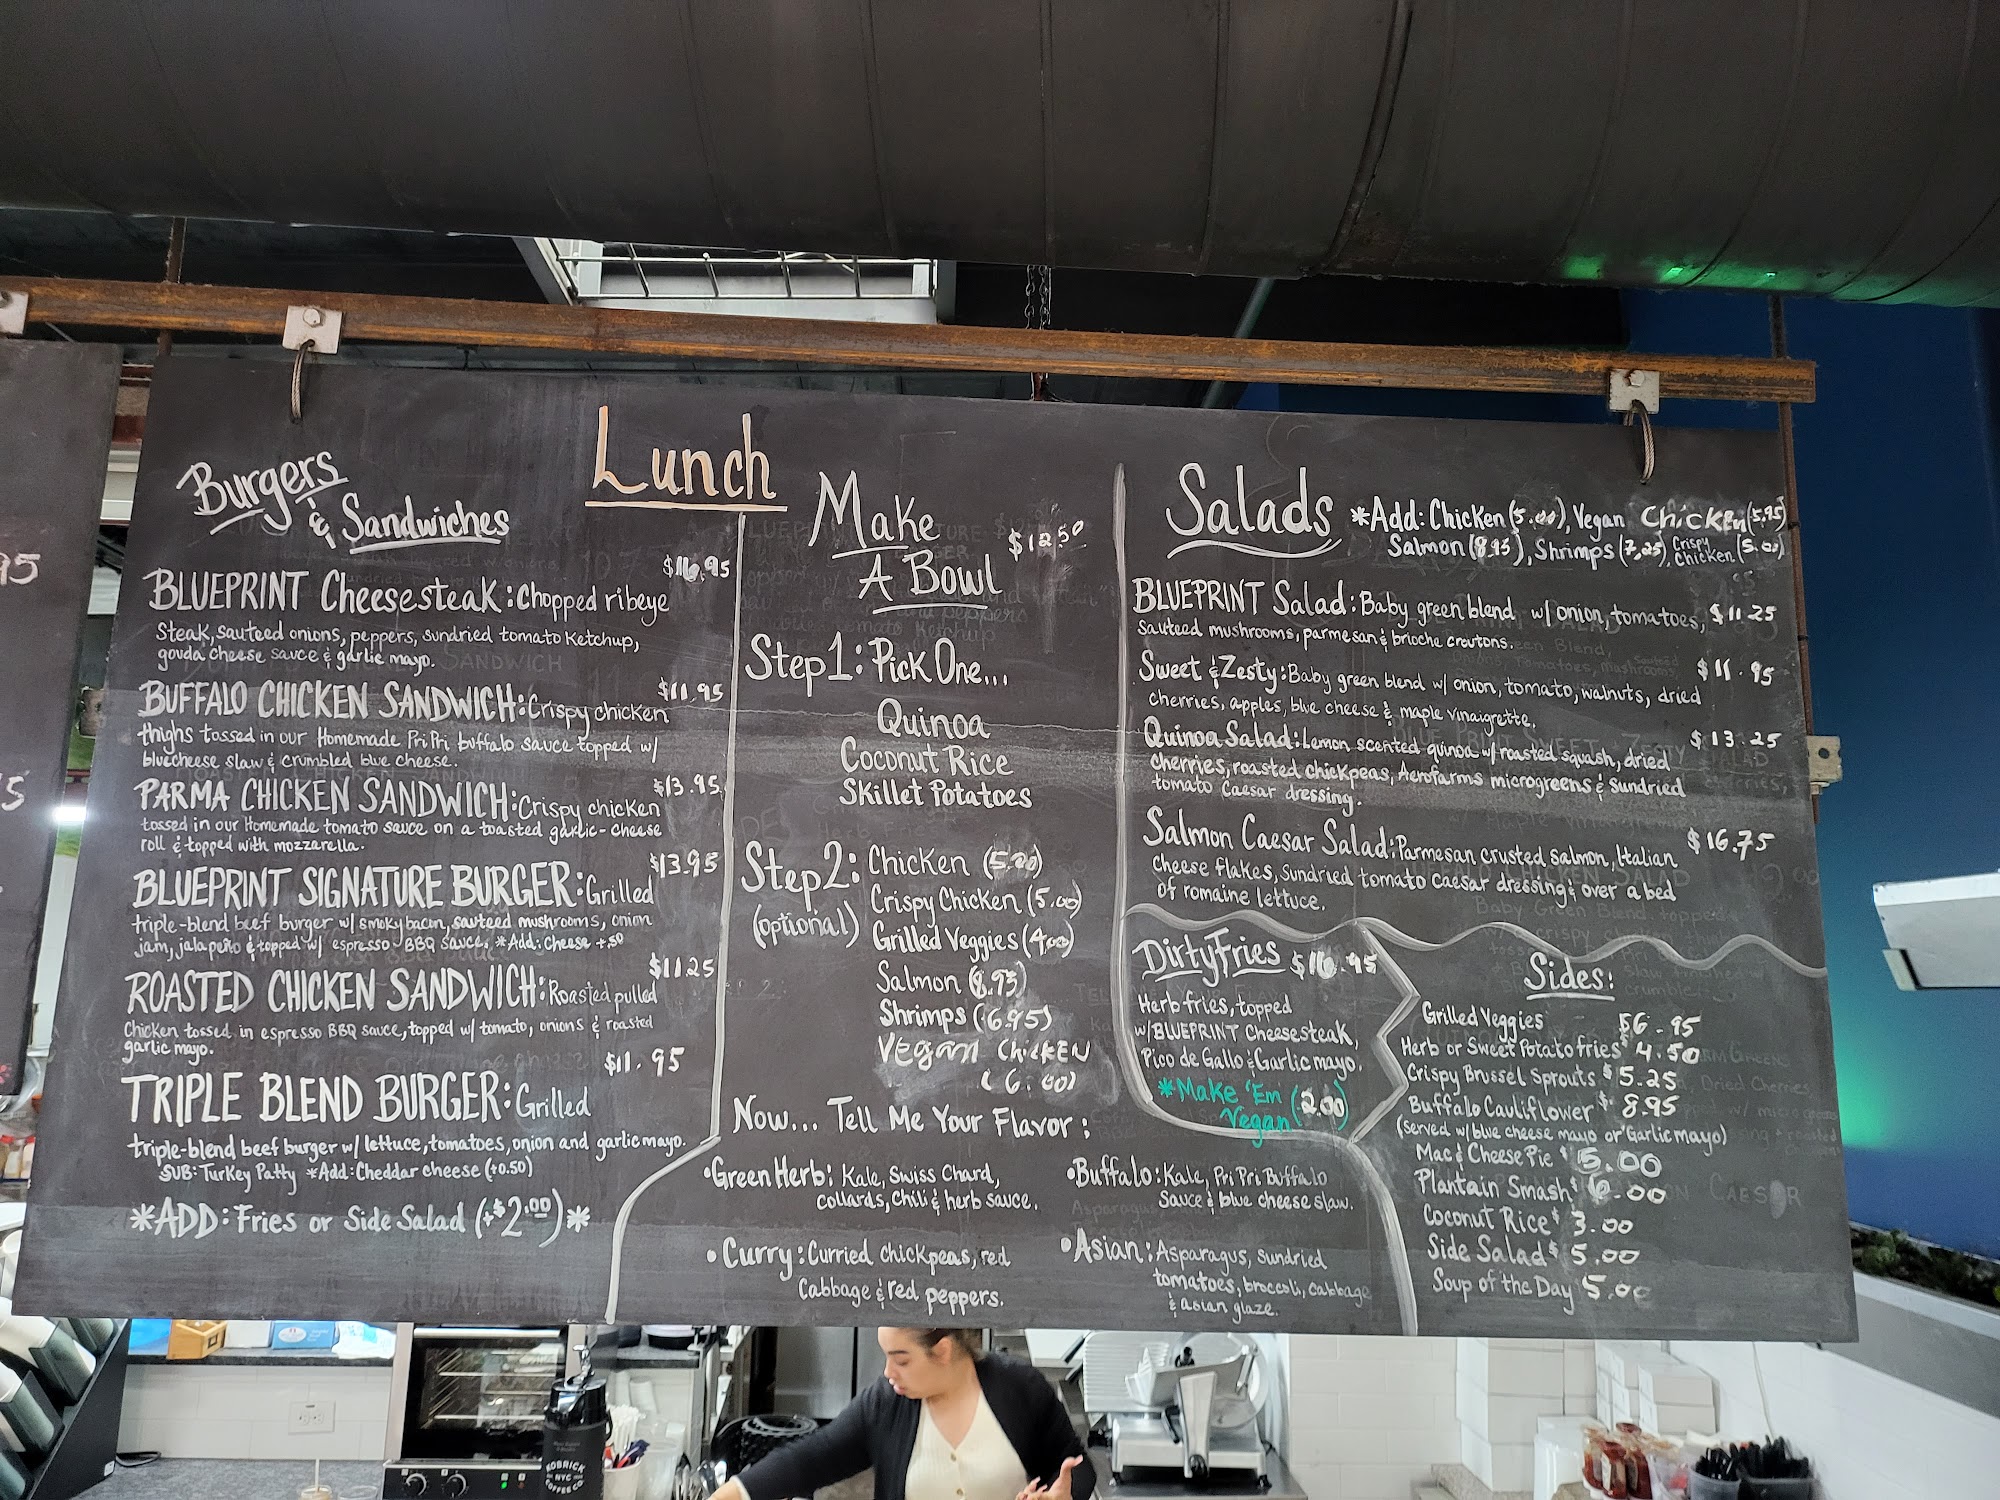 Lunch
Burgers
& Sandwiches
$16.95
BLUEPRINT Cheesesteak: Chopped ribeye
Steak, sauteed onions, peppers, sundried tomato Ketchup,
gouda cheese sauce & garlic mayo.
$11.95
BUFFALO CHICKEN SANDWICH: Crispy chicken
thighs tossed in our Homemade Pri Pri buffalo sauce topped w/
bluecheese slaw & crumbled blue cheese.
$13.95
PARMA CHICKEN SANDWICH: Crispy chicken
tossed in our Homemade tomato sauce on a toasted garlic-cheese
roll & topped with mozzarella.
$13.95
BLUEPRINT SIGNATURE BURGER: Grilled
triple-blend beef burger w/ smoky bacon, sauteed mushrooms, onion
jam, jalapeño & topped w/ espresso BBQ sauce. *Add: Cheese +50
$11.25
ROASTED CHICKEN SANDWICH: Roasted pulled
Chicken tossed in espresso BBQ sauce, topped w/ tomato, onions & roasted
garlic mayo.
$11.95
TRIPLE BLEND BURGER: Grilled
triple-blend beef burger w/ lettuce, tomatoes, onion and garlic mayo.
SUB: Turkey Patty *Add: Cheddar cheese (+0.50)
*ADD: Fries or Side Salad (+$2.00)*
Make
A Bowl
$12.50
Step 1: Pick One...
Quinoa
Coconut Rice
Skillet Potatoes
Step 2:
(optional)
Chicken (5.00)
Crispy Chicken (5.00)
Grilled Veggies (4.00)
Salmon (8.95)
Shrimps (6.95)
VEGAN CHICKEN
(6.00)
Now... Tell Me Your Flavor:
•Green Herb: Kale, Swiss Chard,
collards, chili & herb sauce.
•Buffalo: Kale, Pri Pri Buffalo
Sauce & blue cheese slaw.
•Curry: Curried chickpeas, red
Cabbage & red peppers.
•Asian: Asparagus, sundried
tomatoes, broccoli, cabbage
& asian glaze.
Salads
*Add: Chicken (5.00), Vegan Chicken (5.95)
Salmon (8.95), Shrimps (7.25), Crispy Chicken (5.00)
BLUEPRINT Salad: Baby green blend w/ onion, tomatoes, $11.25
Sauteed mushrooms, parmesan & brioche croutons.
Sweet & Zesty: Baby green blend w/ onion, tomato, walnuts, dried $11.95
cherries, apples, blue cheese & maple vinaigrette.
Quinoa Salad: Lemon scented quinoa w/ roasted squash, dried $13.25
cherries, roasted chickpeas, Aerofarms microgreens & Sundried
tomato Caesar dressing.
Salmon Caesar Salad: Parmesan crusted salmon, Italian $16.75
cheese flakes, Sundried tomato caesar dressing & over a bed
of romaine lettuce.
Dirty Fries $16.95
Herb fries, topped
w/ BLUEPRINT Cheesesteak,
Pico de Gallo & Garlic mayo.
*Make 'Em
Vegan (2.00)
Sides:
Grilled Veggies $6.95
Herb or Sweet Potato fries $4.50
Crispy Brussel Sprouts $5.25
Buffalo Cauliflower $8.95
(served w/ blue cheese mayo or Garlic mayo)
Mac & Cheese Pie $5.00
Plantain Smash $6.00
Coconut Rice $3.00
Side Salad $5.00
Soup of the Day 5.00
NYC
COFFEE CO.